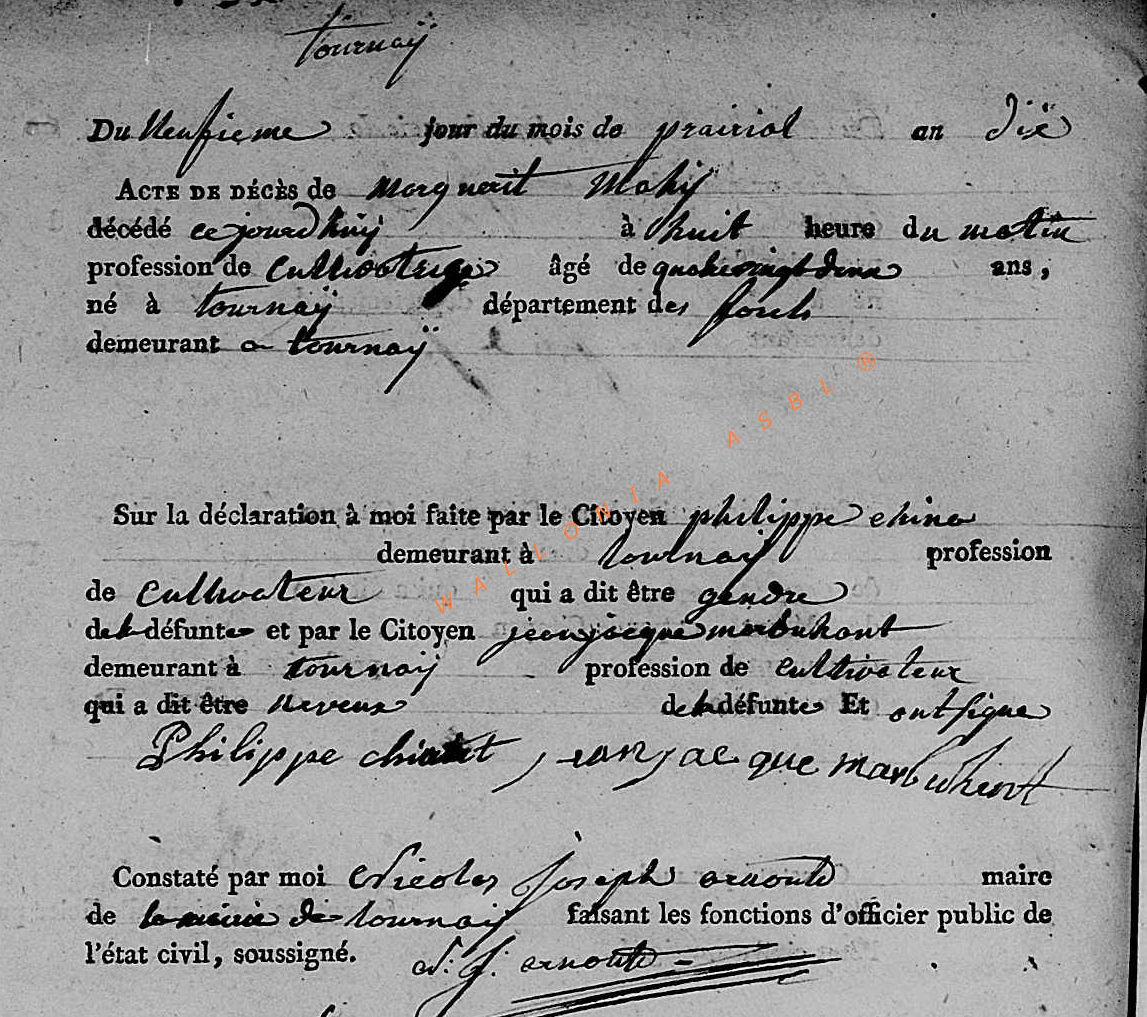 tournaÿ
Du neufieme jour du mois de prairial an dix
ACTE DE DÉCÈS de marguerit mahij
décédé ce jourd'huij à huit heure du matin
profession de cultivatrice âgé de ans,
né à tournaÿ département des forets
demeurant a tournaÿ
Sur la déclaration à moi faite par le Citoyen philippe
demeurant à tournaij profession
de cultivateur qui a dit être gendre
de la défunte et par le Citoyen jean jacque
demeurant à tournaij profession de cultivateur
qui a dit être neveux de la défunte Et ont signe
Philippe jean jacque
Constaté par moi Nicolas Joseph arnould maire
de la mairie de tournaij faisant les fonctions d'officier public de
l'état civil, soussigné. N. J. arnould
WALLONIA ASBL ®